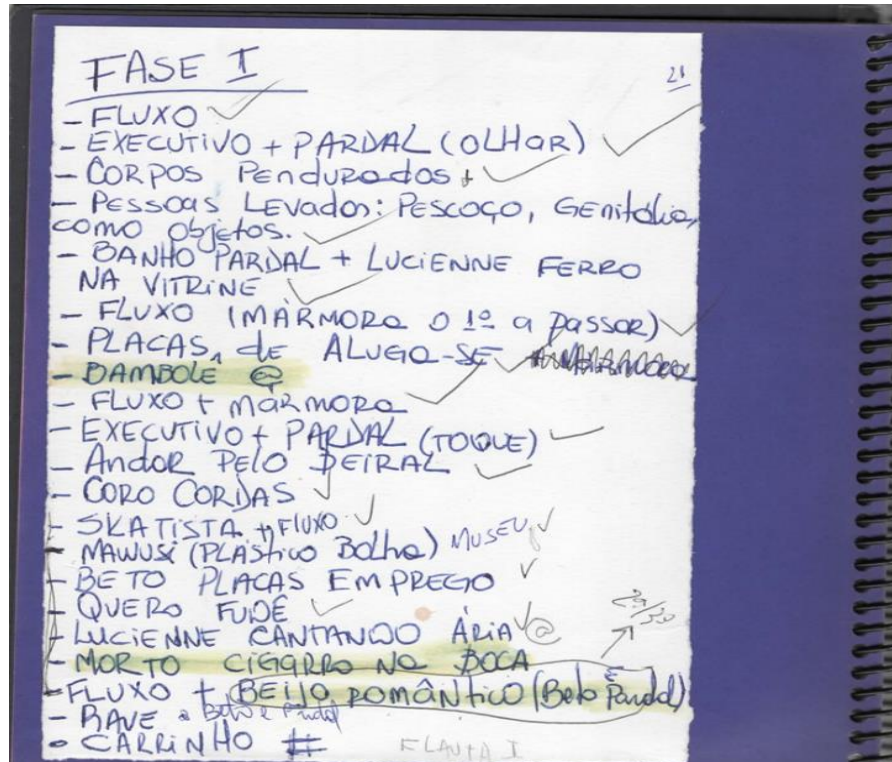 FASE I
21
- FLUXO ✓
- EXECUTIVO + PARDAL (OLHAR) ✓
- CORPOS PENDURADOS. ✓
- PESSOAS LEVADAS: PESCOÇO, GENITÁLIA,
COMO OBJETOS. ✓
- BANHO PARDAL + LUCIENNE FERRO
NA VITRINE ✓
- FLUXO (MÁRMORA O 1º a PASSAR) ✓
- PLACAS, de ALUGA-SE ✓
- BAMBOLE @
- FLUXO + MÁRMORA ✓
- EXECUTIVO + PARDAL (TOQUE) ✓
- ANDAR PELO BEIRAL ✓
- CORO CORDAS ✓
- SKATISTA + FLUXO ✓
- MAWUSI (PLÁSTICO BOLHA) MUSEU ✓
- BETO PLACAS EMPREGO ✓
- QUERO FUDÊ ✓
- LUCIENNE CANTANDO ÁRIA ✓ @
29/30
- MORTO CIGARRO NA BOCA
- FLUXO + BEIJO ROMÂNTICO (Beto e Pardal)
- RAVE Beto e Pardal
- CARRINHO #
FLAUTA I